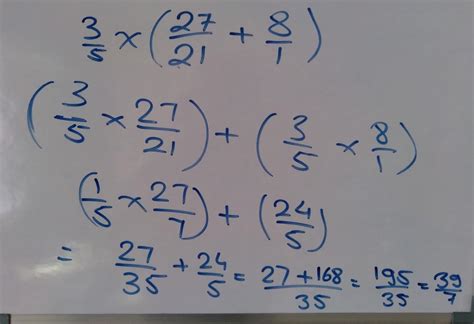 3/5 × (27/21 + 8/1)
(3/5 × 27/21) + (3/5 × 8/1)
(1/5 × 27/7) + (24/5)
= 27/35 + 24/5 = 27+168/35 = 195/35 = 39/7